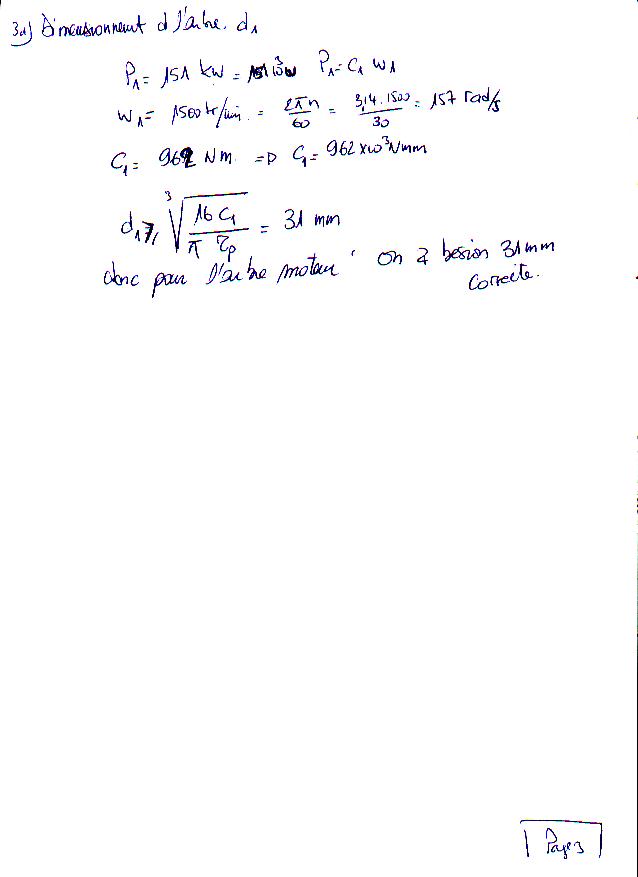 3a) Dimensionnement d l'arbre. d1
P1 = 151 kW = 151 10³ W P1 = C1 W1
W1 = 1500 tr/min. = 2πn/60 = 3,14.1500/30 = 157 rad/s
C1 = 962 Nm. => C1 = 962 x10³ Nmm
d1 ≥ ³√(16 C1 / π τp) = 31 mm
donc pour l'arbre moteur on a besion 31mm
correcte.
Page 3